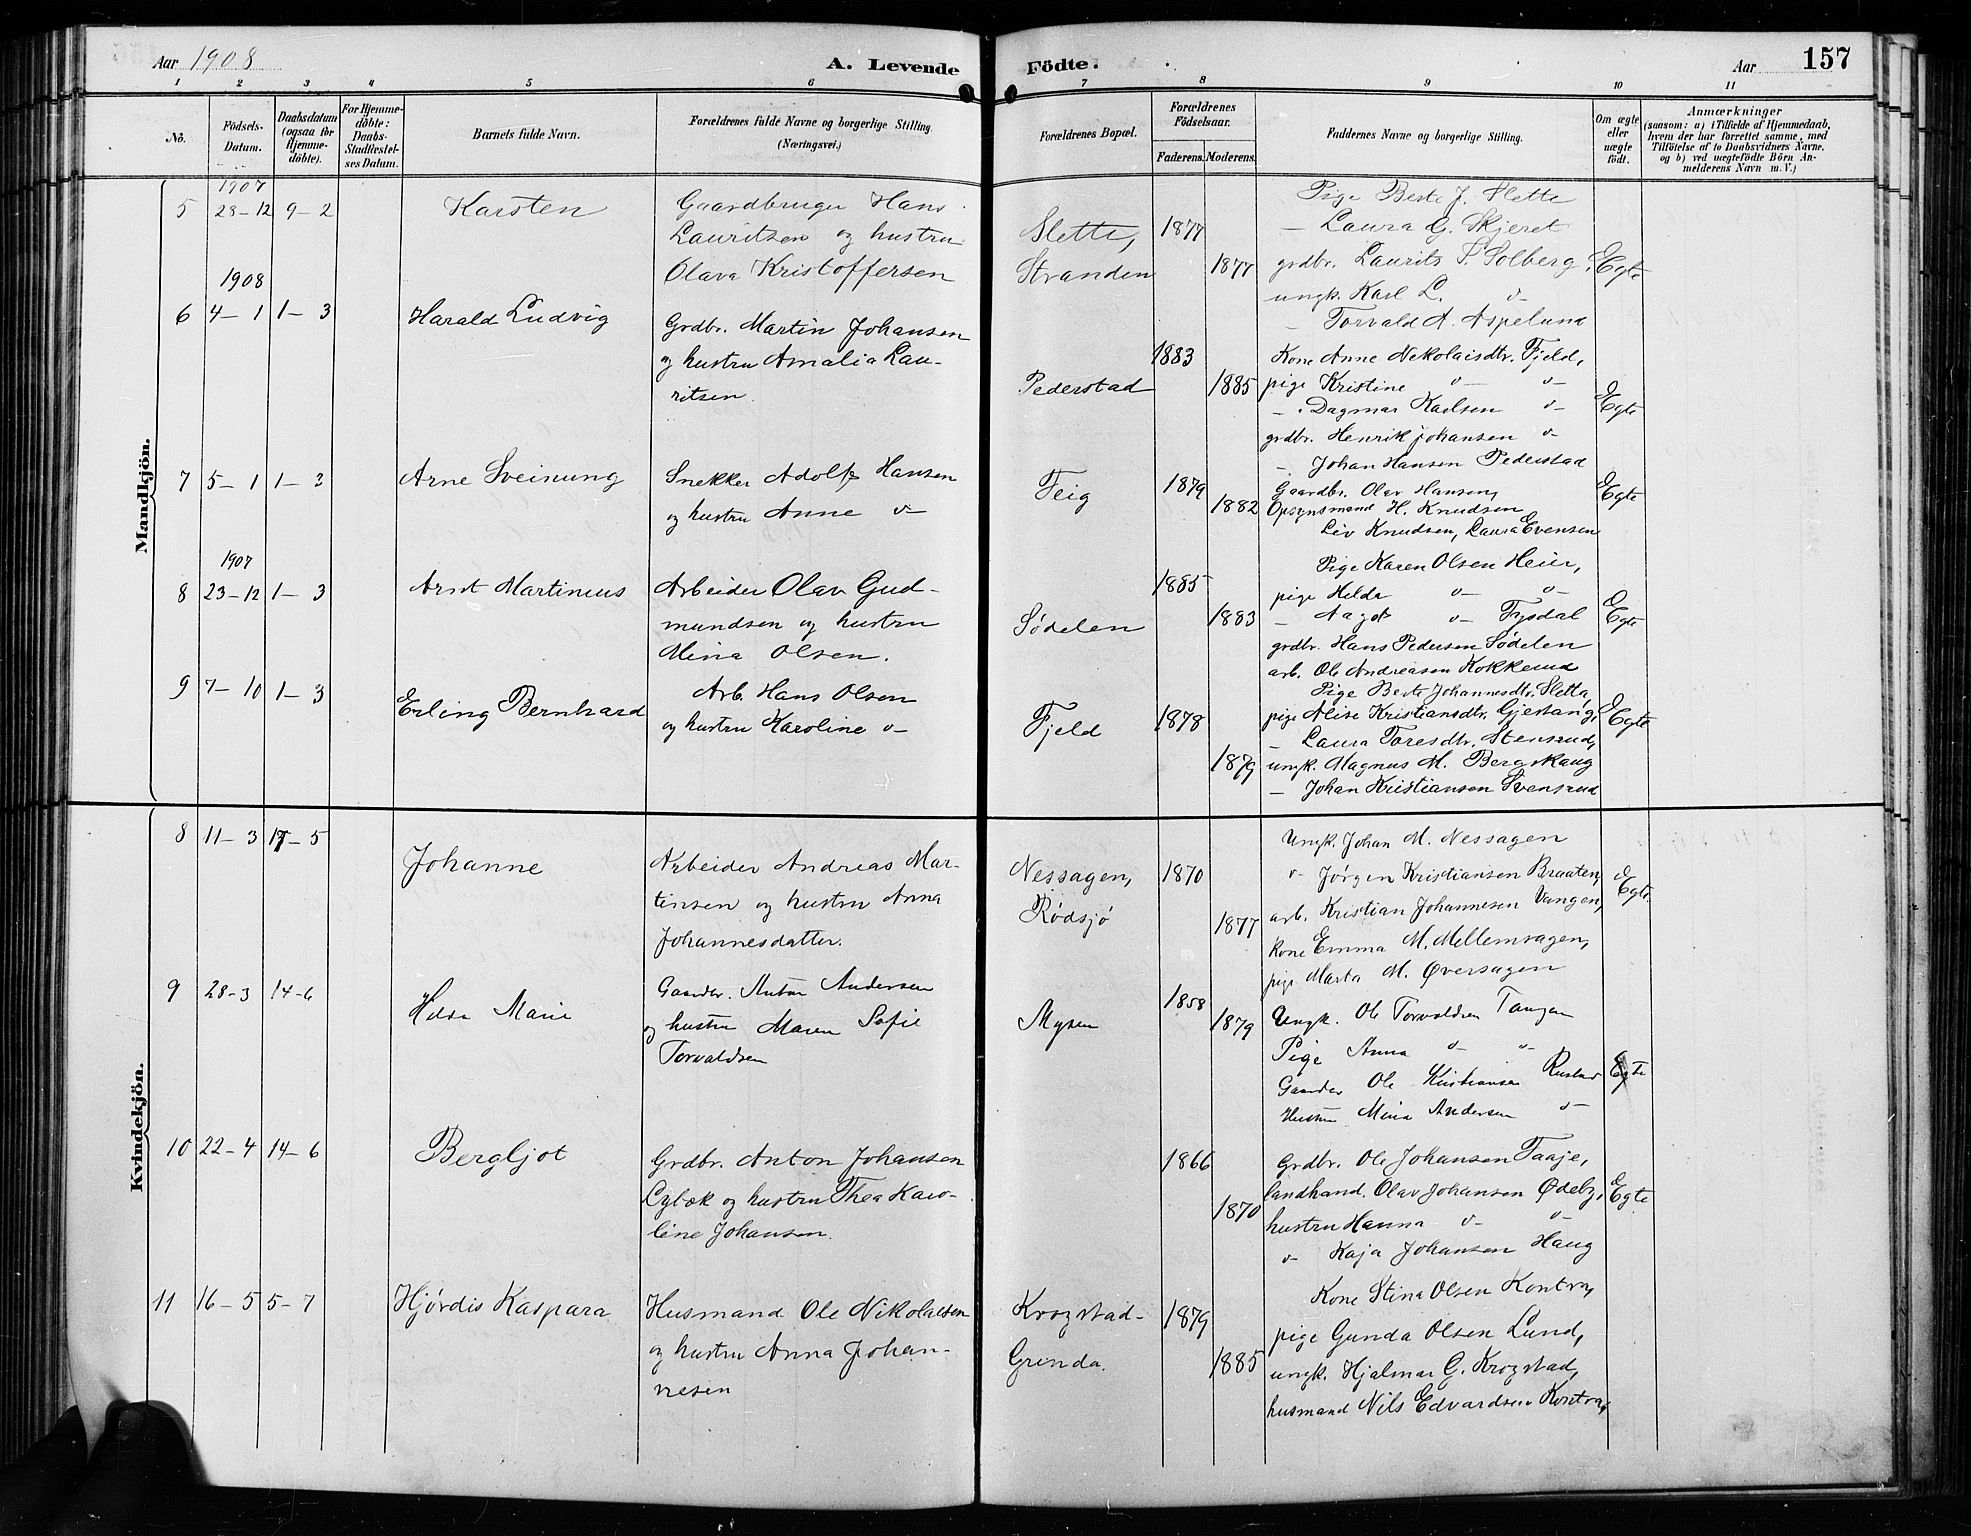 Aar 1908 A. Levende Födte. Aar 157
1 2 3 4 5 6 7 8 9 10 11
No. Födsels-Datum. Daabsdatum (ogsaa for Hjemme-döbte). For Hjemme-döbte: Daabs-Stadfæstel-ses Datum. Barnets fulde Navn. Forældrenes fulde Navne og borgerlige Stilling. (Næringsvei.) Forældrenes Bopæl. Forældrenes Födselsaar. Faderens. Moderens. Faddernes Navne og borgerlige Stilling. Om ægte eller uægte födt. Anmærkninger (saasom: a) i Tilfælde af Hjemmedaab, hvem der har forrettet samme, med Tilföielse af to Daabsvidners Navne, og b) ved uægtefödte Börn An-melderens Navn m. V.)
Mandkjön.
1907
5 28-12 9-2 Karsten Gaardbruger Hans
Lauritsen og hustru
Olava Kristoffersen
Slette,
Stranden
1877 1877
Pige Berte J. Slette
- Laura G. Skjeret
grdbr. Laurits S. Solberg,
ungk. Karl L. o-
- Torvald A. Aspelund
Egte
1908
6 4-1 1-3 Harald Ludvig Grdbr. Martin Johansen
og hustru Amalia Lau-
ritsen.
Pederstad
1883 1885
Kone Anne Nikolaisdtr. Fjeld,
pige Kristine o- o-
- Dagmar Karlsen o-
grdbr. Henrik Johansen o-
- Johan Hansen Pederstad
Egte
7 5-1 1-3 Arne Sveinung Snekker Adolf Hansen
og hustru Anne o-
Feig
1879 1882
Gaardbr. Olav Hansen,
Opsynsmand H. Knudsen
Liv Knudsen, Laura Evensen
Egte
1907
8 23-12 1-3 Arnt Martinius Arbeider Olav Gud-
mundsen og hustru
Mina Olsen.
Sødelen
1885 1883
Pige Karen Olsen Heier,
pige Hilda o- o-
- Aagot o- Fysdal
grdbr. Hans Pedersen Sødelen
arb. Ole Andreasen Kokkerud
Egte
9 7-10 1-3 Erling Bernhard Arb. Hans Olsen
og hustru Karoline o-
Fjeld
1878 1879
Pige Berte Johannesdtr. Sletta,
pige Alise Kristiansdtr. Gjestang,
- Laura Toresdtr. Stensrud,
ungk. Magnus M. Bergskaug
- Johan Kristiansen Svensrud
Egte
Kvindekjön.
8 11-3 17-5 Johanne Arbeider Andreas Mar-
tinsen og hustru Anna
Johannesdatter.
Nessagen,
Rødsjø
1870 1877
Ungk. Johan M. Nessagen
o- Jørgen Kristiansen Braaten,
arb. Kristian Johannesen Vangen,
kone Emma M. Mellemsagen,
pige Marta M. Øversagen
Egte
9 28-3 14-6 Hilda Marie Gaardbr. Anton Andersen
og hustru Maren Sofie
Torvaldsen
Mysen
1858 1879
Ungk. Ole Torvaldsen Tangen
Pige Anna o- o-
Gaardbr Ole Kristiansen Rustad
Hustru Mina Andersen o-
Egte
10 22-4 14-6 Bergljot Grdbr. Anton Johansen
Lybæk og hustru Thea Karo-
line Johansen.
1866 1870
Grdbr. Ole Johansen Taaje,
landhand. Olav Johansen Ødeby,
hustru Hanna o- o-
o- Kaja Johansen Haug
Egte
11 16-5 5-7 Hjørdis Kaspara Husmand Ole Nikolaisen
og hustru Anna Johan-
nesen
Krogstad-
Grinda.
1879 1885
Kone Stina Olsen Kontra,
pige Gunda Olsen Lund,
ungk. Hjalmar G. Krogstad,
husmand Nils Edvardsen Kontra,